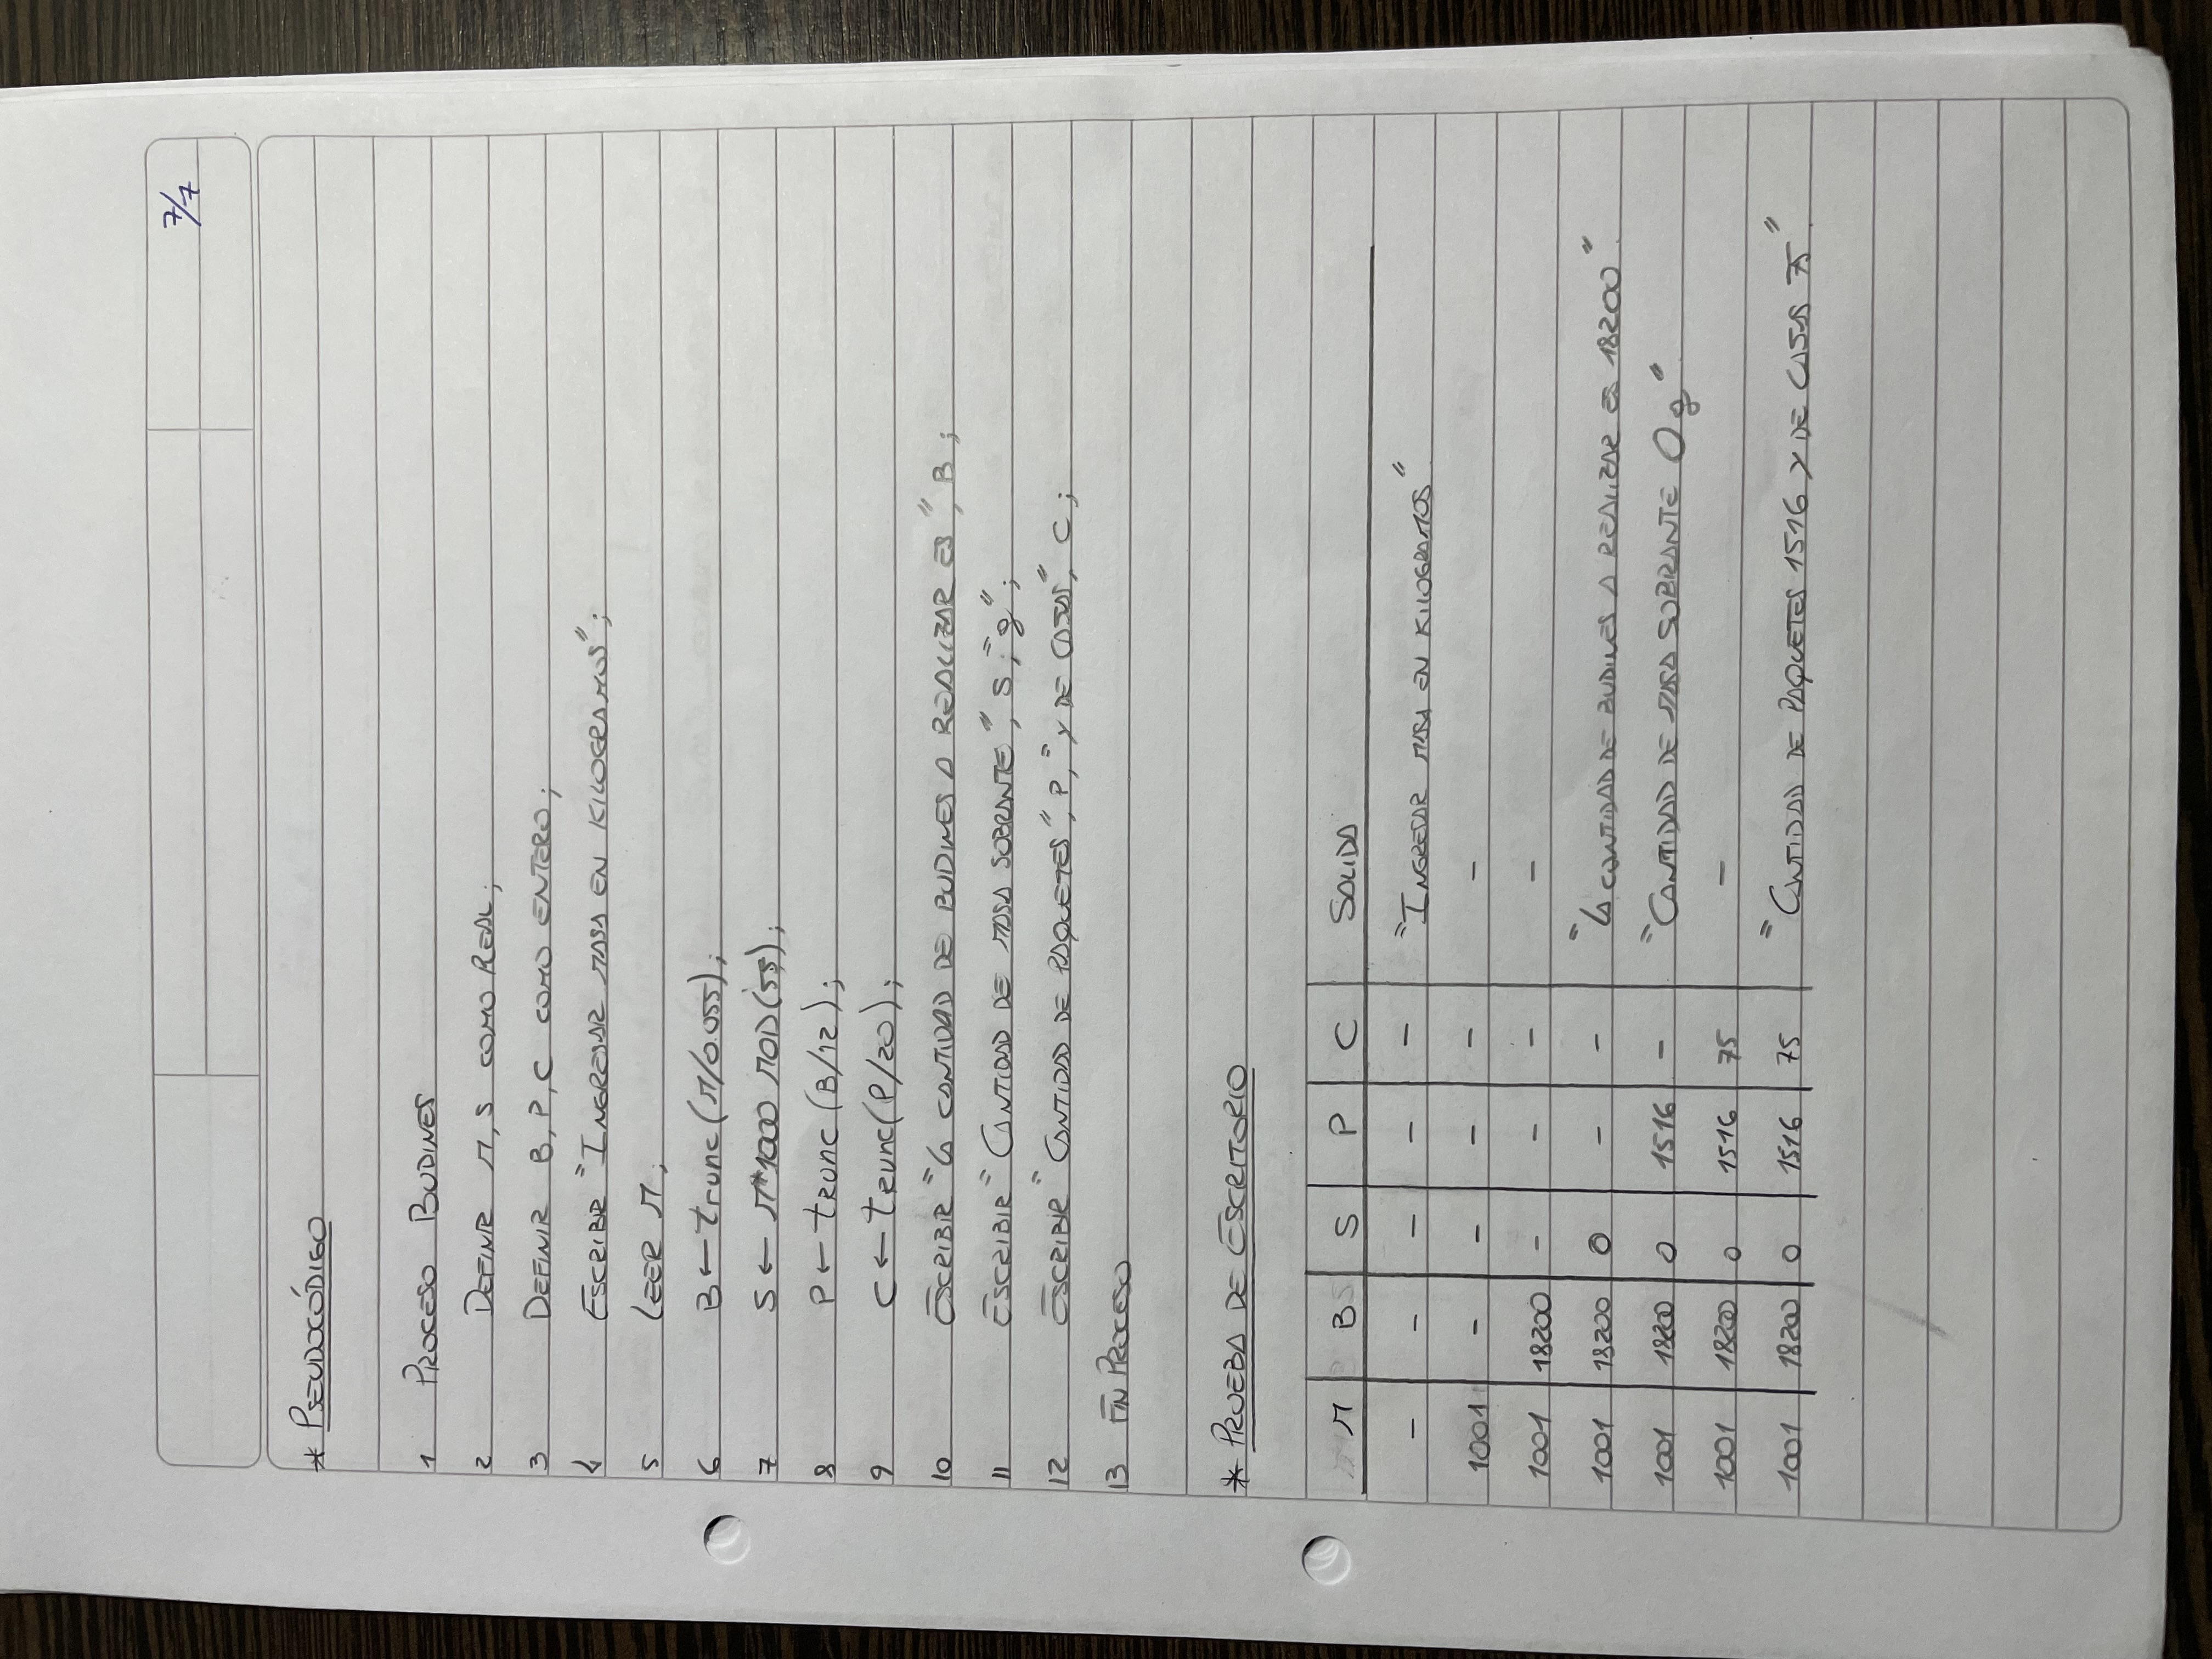 7/7
* PSEUDOCÓDIGO
1 PROCESO BUDINES
2 DEFINIR M, S COMO REAL;
3 DEFINIR B, P, C COMO ENTERO;
4 ESCRIBIR "INGRESAR MASA EN KILOGRAMOS";
5 LEER M;
6 B ← trunc(M/0.055);
7 S ← M*1000 MOD(55);
8 P ← trunc(B/12);
9 C ← trunc(P/20);
10 ESCRIBIR "LA CANTIDAD DE BUDINES A REALIZAR ES", B;
11 ESCRIBIR "CANTIDAD DE MASA SOBRANTE", S; "g";
12 ESCRIBIR "CANTIDAD DE PAQUETES", P, "Y DE CAJAS", C;
13 FIN PROCESO
* PRUEBA DE ESCRITORIO
M B S P C SALIDA
- - - - - "INGRESAR MASA EN KILOGRAMOS"
1001 - - - - -
1001 18200 - - - -
1001 18200 0 - - "LA CANTIDAD DE BUDINES A REALIZAR ES 18200".
1001 18200 0 1516 - "CANTIDAD DE MASA SOBRANTE 0 g".
1001 18200 0 1516 75 -
1001 18200 0 1516 75 "CANTIDAD DE PAQUETES 1516 Y DE CAJAS 75".